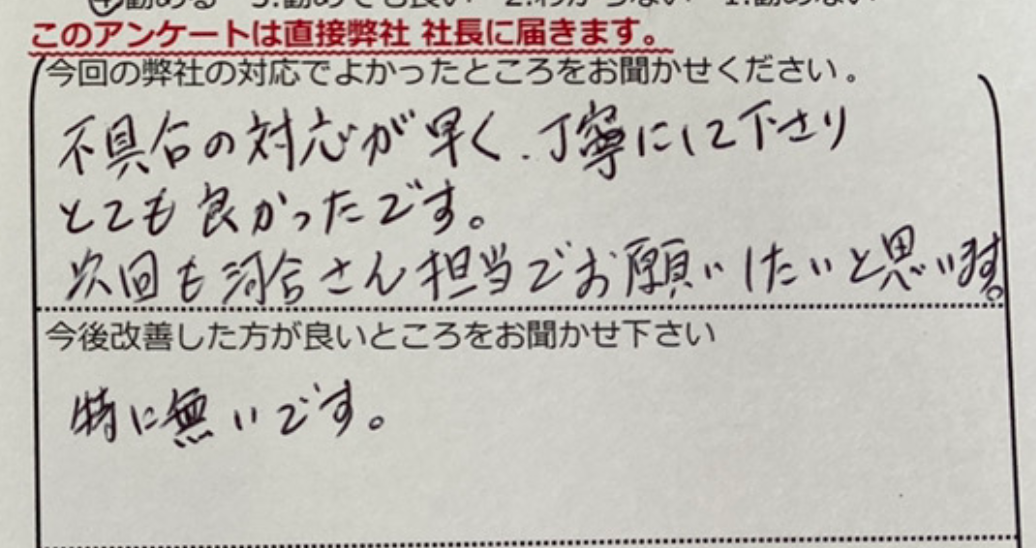 ④勧める 3.勧めても良い 2.わからない 1.勧めない
このアンケートは直接弊社 社長に届きます。
今回の弊社の対応でよかったところをお聞かせください。
不具合の対応が早く、丁寧にして下さり
とても良かったです。
次回も河合さん担当でお願いしたいと思います。
今後改善した方が良いところをお聞かせ下さい
特に無いです。